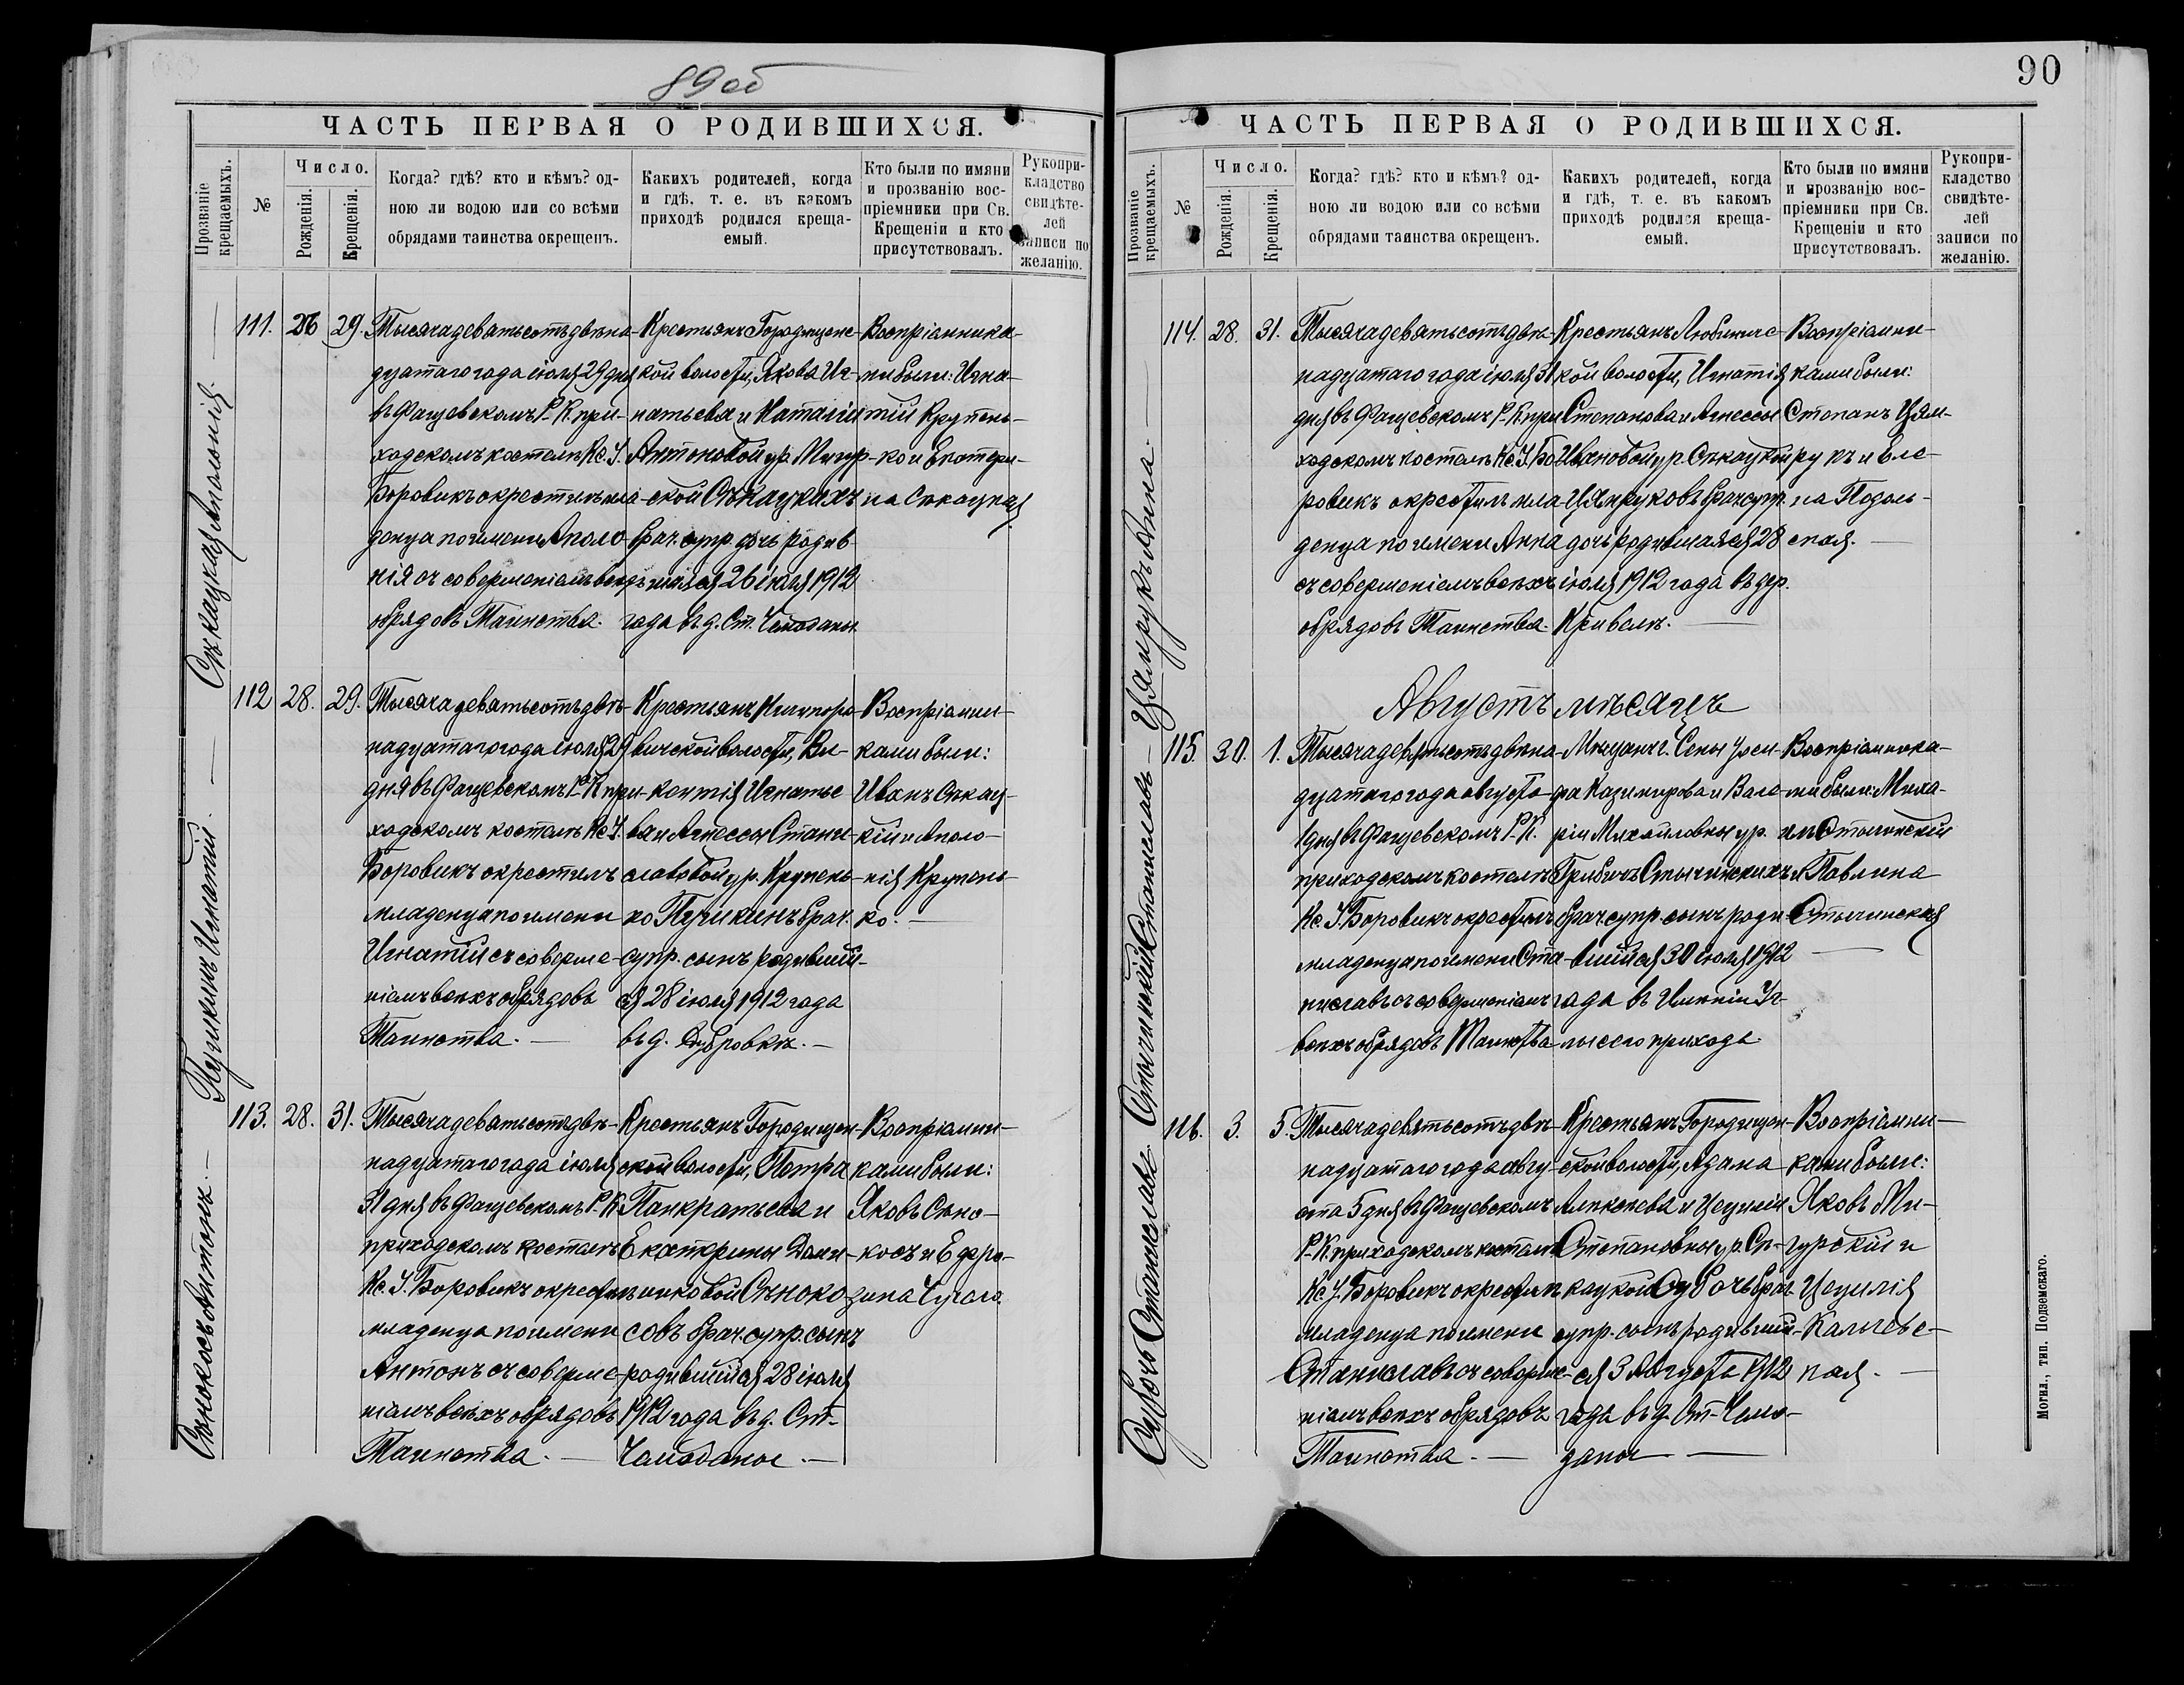 89 об
ЧАСТЬ ПЕРВАЯ О РОДИВШИХСЯ.
Прозваніе крещаемыхъ.
№
Число.
Рожденія.
Крещенія.
Когда? гдѣ? кто и кѣмъ? од-
ною ли водою или со всѣми
обрядами таинства окрещенъ.
Какихъ родителей, когда
и гдѣ, т. е. въ какомъ
приходѣ родился креща-
емый.
Кто были по имяни
и прозванію вос-
пріемники при Св.
Крещеніи и кто
присутствовалъ.
Рукопри-
кладство
свидѣте-
лей
записи по
желанію.
Сѣкацкая Аполонія.
111. 26 29.
Тысяча девятьсотъ двѣна-
дцатаго года іюля 29 дня
въ Фащевскомъ Р. К. при-
ходскомъ костелѣ Кс. І.
Боровикъ окрестилъ мла-
денца по имени Аполо-
нія съ совершеніемъ всѣхъ
обрядовъ Таинства.
Крестьянъ Городищенс-
кой волости, Якова Иг-
натьева и Наталіи
Антоновой ур. Мигур-
ской Сѣкацкихъ
брач. супр. дочь родив-
шаяся 26 іюля 1912
года въ д. Ст. Чемоданы.
Воспріемника-
ми были: Игна-
тій Крупень-
ко и Екатери-
на Сѣкацкая
Пучикинъ Игнатій.
112 28. 29.
Тысяча девятьсотъ двѣ-
надцатаго года іюля 29
дня въ Фащевскомъ Р. К. при-
ходскомъ костелѣ Кс. І.
Боровикъ окрестилъ
младенца по имени
Игнатій съ соверше-
ніемъ всѣхъ обрядовъ
Таинства.
Крестьянъ
волости, Ви-
кентія Игнатье-
ва и Агнессы Стани-
славовой ур. Крупень-
ко Пучикинъ брач.
супр. сынъ родивший-
ся 28 іюля 1912 года
въ д. Дубровкѣ.
Воспріемни-
ками были:
Иванъ Сѣкац-
кій и Аполо-
нія Крупень-
ко.
Сѣнокосовъ Антонъ.
113. 28. 31.
Тысяча девятьсотъ двѣ-
надцатаго года іюля
31 дня въ Фащевскомъ Р. К.
приходскомъ костелѣ
Кс. І. Боровикъ окрестилъ
младенца по имени
Антонъ съ соверше-
ніемъ всѣхъ обрядовъ
Таинства.
Крестьянъ Городищен-
ской волости, Петра
Панкратьева и
Екатерины Доми-
никовой Сѣноко-
совъ брач. супр. сынъ
родившійся 28 іюля
1912 года въ д. Ст.
Чемоданы.
Воспріемни-
ками были:
Яковъ Сѣно-
косъ и Ефро-
зина
90
ЧАСТЬ ПЕРВАЯ О РОДИВШИХСЯ.
Прозваніе крещаемыхъ.
№
Число.
Рожденія.
Крещенія.
Когда? гдѣ? кто и кѣмъ? од-
ною ли водою или со всѣми
обрядами таинства окрещенъ.
Какихъ родителей, когда
и гдѣ, т. е. въ какомъ
приходѣ родился креща-
емый.
Кто были по имяни
и прозванію вос-
пріемники при Св.
Крещеніи и кто
присутствовалъ.
Рукопри-
кладство
свидѣте-
лей
записи по
желанію.
Цямрукъ Анна.
114. 28. 31.
Тысяча девятьсотъ двѣ-
надцатаго года іюля 31
дня въ Фащевскомъ Р. К. при-
ходскомъ костелѣ Кс. І. Бо-
ровикъ окрестилъ мла-
денца по имени Анна
съ совершеніемъ всѣхъ
обрядовъ Таинства.
Крестьянъ Любинич-
кой волости, Игнатія
Степанова и Агнессы
Ивановой ур. Сѣкацкой
Цямруковъ брач. супр.
дочь родившаяся 28
іюля 1912 года въ дер.
Кривелѣ.
Воспріемни-
ками были:
Степанъ Цям-
рукъ и Еле-
на Подоль-
ская.
Августъ мѣсяцъ
Стычинскій Станиславъ
115. 30. 1.
Тысяча девятьсотъ двѣна-
дцатаго года августа
1 дня въ Фащевскомъ Р. К.
приходскомъ костелѣ
Кс. І. Боровикъ окрестилъ
младенца по имени Ста-
ниславъ съ совершеніемъ
всѣхъ обрядовъ Таинства
Мѣщанъ г. Сены Іоси-
фа Казимирова и Вале-
ріи Михайловны ур.
Грибичъ Стычинскихъ
брач. супр. сынъ роди-
вшійся 30 іюля 1912
года въ имѣніи Уг-
лы сего прихода.
Воспріемника-
ми были: Миха-
илъ Стычинскій
и Павлина
Стычинская
Субочъ Станиславъ
116. 3. 5.
Тысяча девятьсотъ двѣ-
надцатаго года авгу-
ста 5 дня въ Фащевскомъ
Р. К. приходскомъ костелѣ
Кс. І. Боровикъ окрестилъ
младенца по имени
Станиславъ съ соверше-
ніемъ всѣхъ обрядовъ
Таинства.
Крестьянъ Городищен-
ской волости, Адама
Алексѣева и Цециліи
Степановны ур. Сѣ-
кацкой Субочъ брач.
супр. сынъ родивший-
ся 3 Августа 1912
года въ д. Ст. Чемо-
даны
Воспріемни-
ками были:
Яковъ Ми-
гурскій и
Цецилія
Калиевс-
кая.
Могил., тип. Подземскаго.